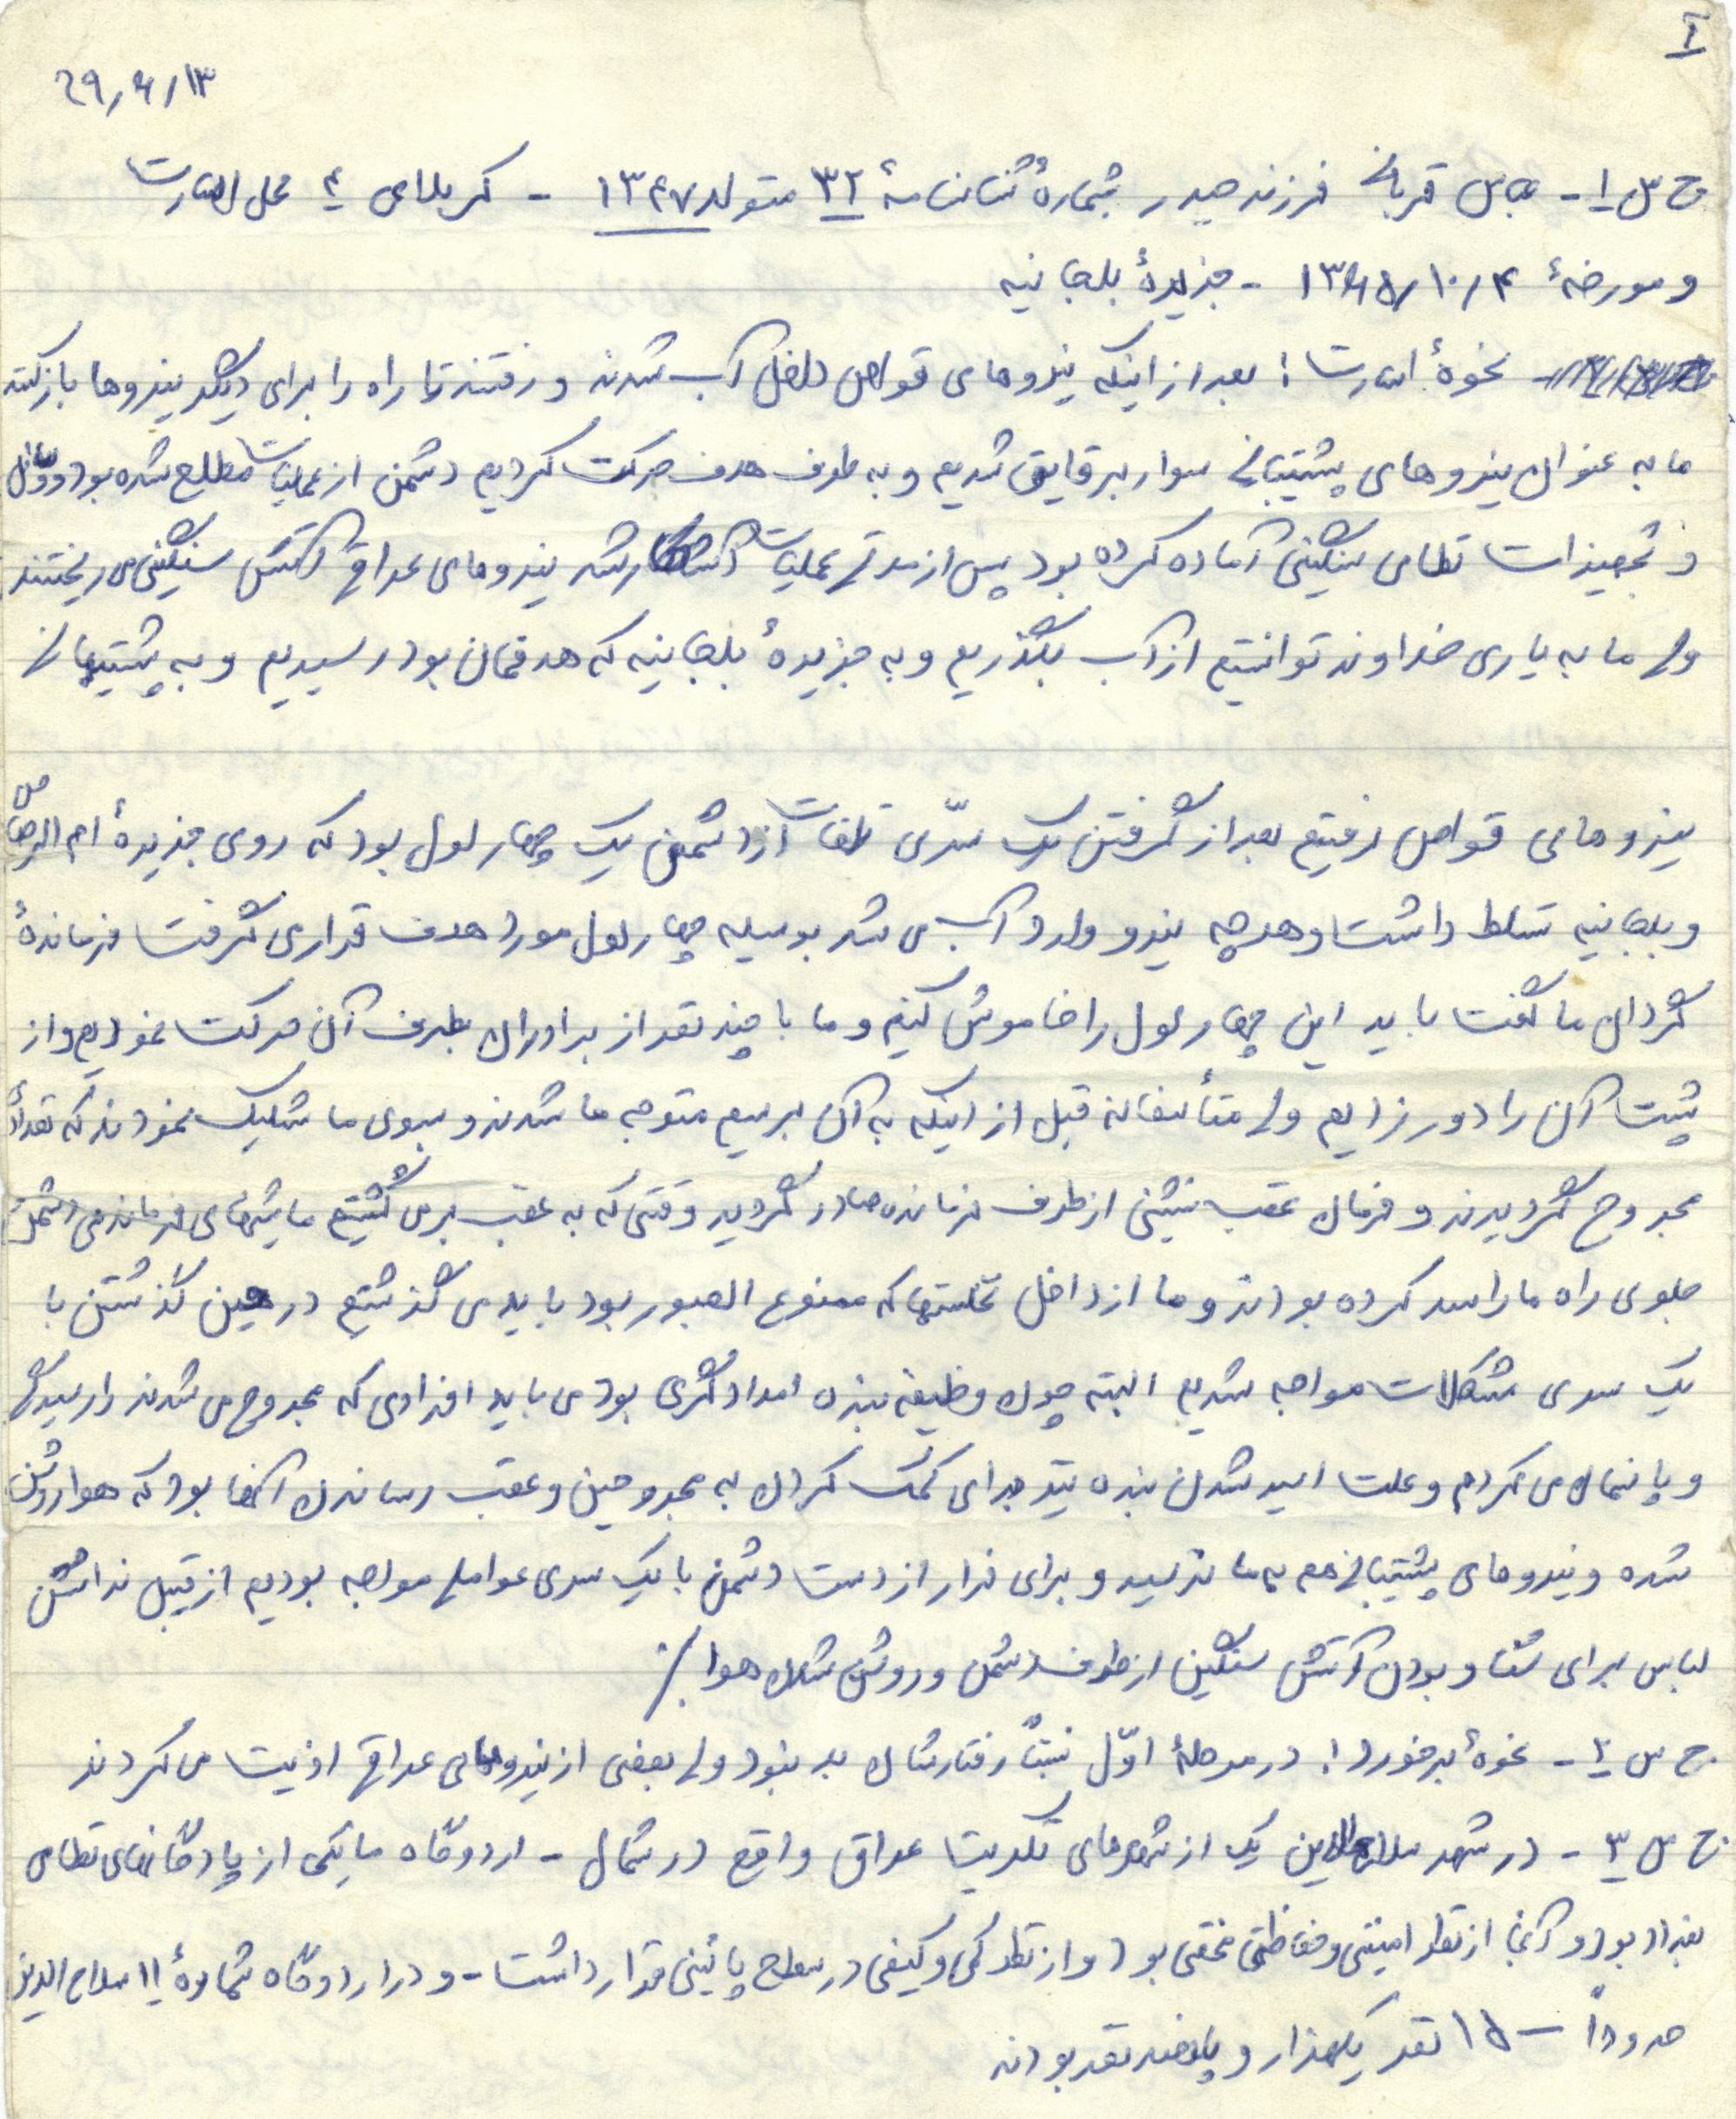 ۱
۶۹/۶/۱۳
ج س ۱- عباس قربانی فرزند حیدر بشمارهٔ شناسنامهٔ ۳۲ متولد ۱۳۴۷ - کربلای ۴ محل اسارت
و مورخهٔ ۱۳۶۵/۱۰/۴ - جزیرهٔ بلجانیه
نحوهٔ اسارت: بعد از اینکه نیروهای قواص داخل آب شدند و رفتند تا راه را برای دیگر نیروها باز کنند
ما به عنوان نیروهای پشتیبانی سوار بر قایق شدیم و به طرف هدف حرکت کردیم دشمن از عملیات مطلع شده بود و
و تجهیزات نظامی سنگینی آماده کرده بود پس از مدتی عملیات آشکار شد نیروهای عراقی آتش سنگینی می ریختند
ولی ما به یاری خداوند توانستیم از آب بگذریم و به جزیرهٔ بلجانیه که هدفمان بود رسیدیم و به پشتیبانی
نیروهای قواص رفتیم بعد از گرفتن یک سّری تلفات از دشمن یک چهار لول بود که روی جزیرهٔ ام الرصاص
و بلجانیه تسلط داشت و هر چه نیرو وارد آب می شد بوسیله چهار لول مورد هدف قرار می گرفت فرماندهٔ
گردان ما گفت باید این چهار لول را خاموش کنیم و ما با چند نفر از برادران بطرف آن حرکت نمودیم و از
پشت آن را دور زدیم ولی متأسفانه قبل از اینکه به آن برسیم متوجه ما شدند و بسوی ما شلیک نمودند که تعدادی
مجروح گردیدند و فرمان عقب نشینی از طرف فرمانده صادر گردید وقتی که به عقب برمی گشتیم ماشینهای فرماندهی دشمن
جلوی راه ما را سد کرده بودند و ما از داخل نخلستانها که ممنوع العبور بود باید می گذشتیم در حین گذشتن با
یک سری مشکلات مواجه شدیم البته چون وظیفه بنده امدادگری بود می باید افرادی که مجروح می شدند را رسیدگی
و پانسمان می کردم و علت اسیر شدن بنده نیز برای کمک کردن به مجروحین و عقب رساندن آنها بود که هوا روشن
شده و نیروهای پشتیبانی هم به ما نرسید و برای فرار از دست دشمن با یک سری عواملی مواجه بودیم از قبیل نداشتن
لباس برای شنا و بودن آتش سنگین از طرف دشمن و روشن شدن هوا ./
ج س ۲ - نحوهٔ برخورد: در مرحلهٔ اوّل نسبتاً رفتارشان بد نبود ولی بعضی از نیروهای عراقی اذیت می کردند
ج س ۳ - در شهر صلاح الدین یکی از شهرهای تکریت عراق واقع در شمال - اردوگاه ما یکی از پادگانهای نظامی
بغداد بود و آنجا از نظر امنیتی و حفاظتی مخفی بود و از نظر کمی و کیفی در سطح پائینی قرار داشت - و در اردوگاه شمارهٔ ۱۱ صلاح الدین
حدوداً ۱۵۰۰ نفر یکهزار و پانصد نفر بودند